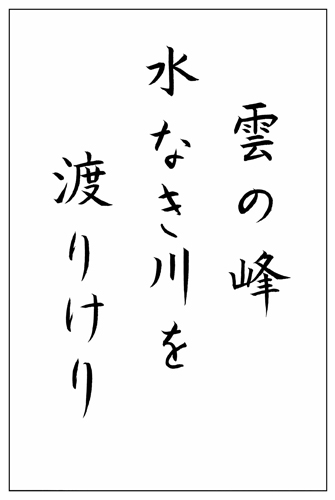 雲の峰
水なき川を
渡りけり